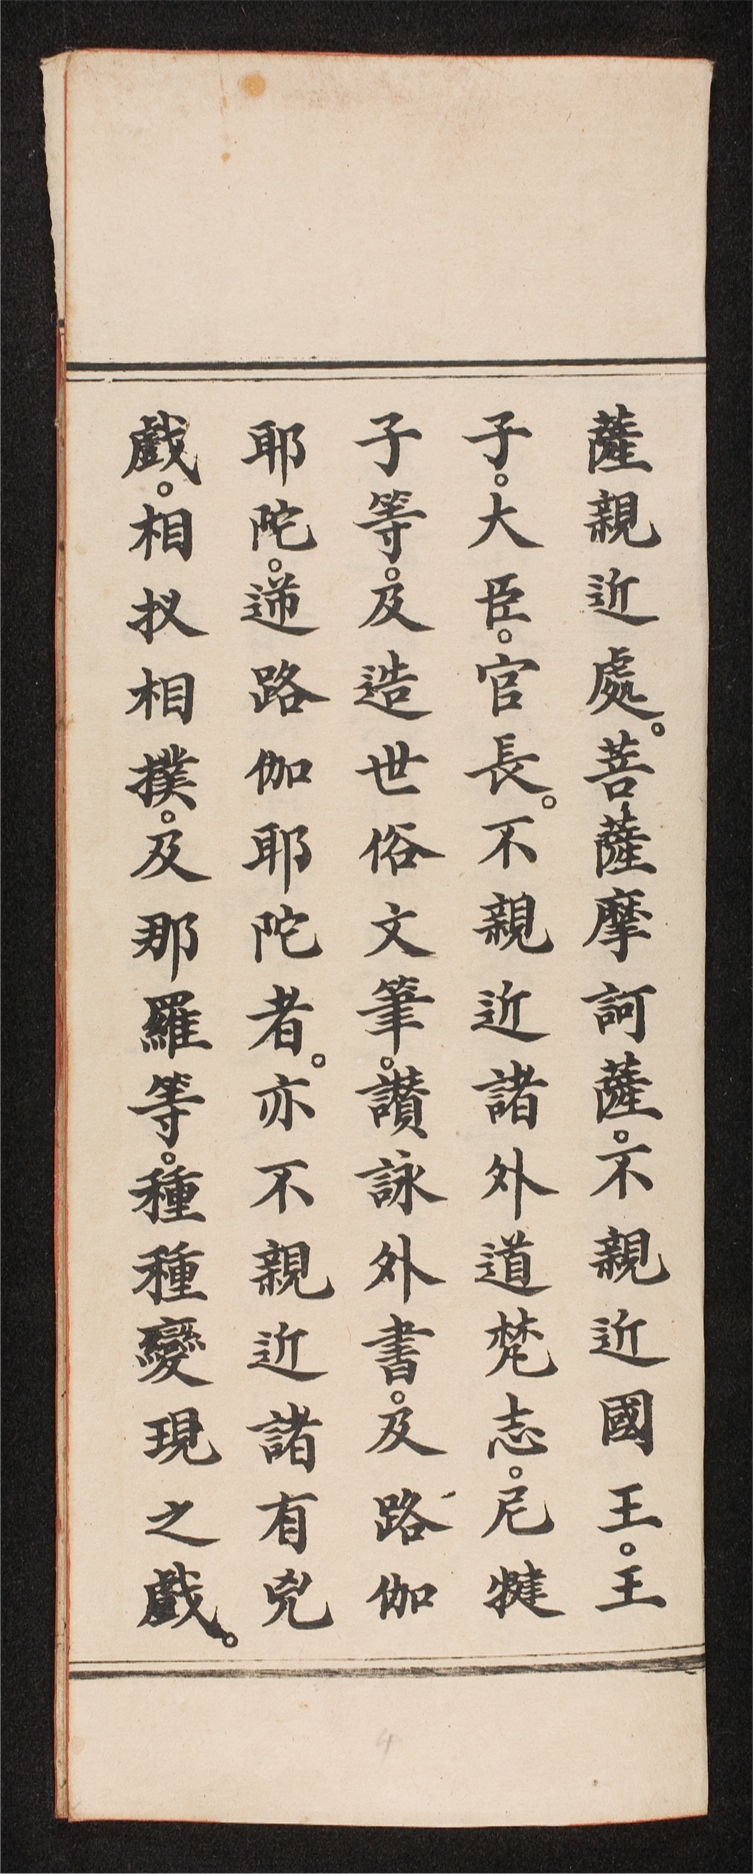 薩親近處。菩薩摩訶薩。不親近國王。王
子。大臣。官長。不親近諸外道梵志。尼犍
子等。及造世俗文筆。讚詠外書。及路伽
耶陀。逆路伽耶陀者。亦不親近諸有兇
戲。相扠相撲。及那羅等。種種變現之戲。
4